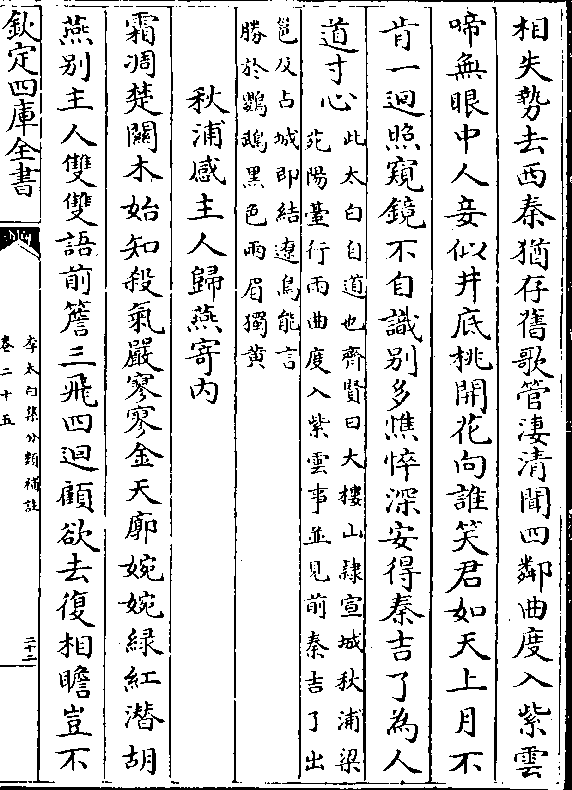 相失勢去西秦猶存舊歌管淒清聞四鄰曲度入紫雲
啼無眼中人妾似井底桃開花向誰笑君如天上月不
肯一迴照窺鏡不自識别多憔悴深安得秦吉了為人
道寸心
此太白自道也齊賢曰大樓山隸宣城秋浦梁
苑陽臺行雨曲度入紫雲事並見前秦吉了出
邕及占城即結遼鳥能言
勝於鸚鵡黑色兩眉獨黄
秋浦感主人歸燕寄内
霜凋楚關木始知殺氣嚴寥寥金天廓婉婉緑紅潛胡
燕别主人雙雙語前簷三飛四迴顧欲去復相瞻豈不
欽定四庫全書
李太白集分類補註
卷二十五
二十二